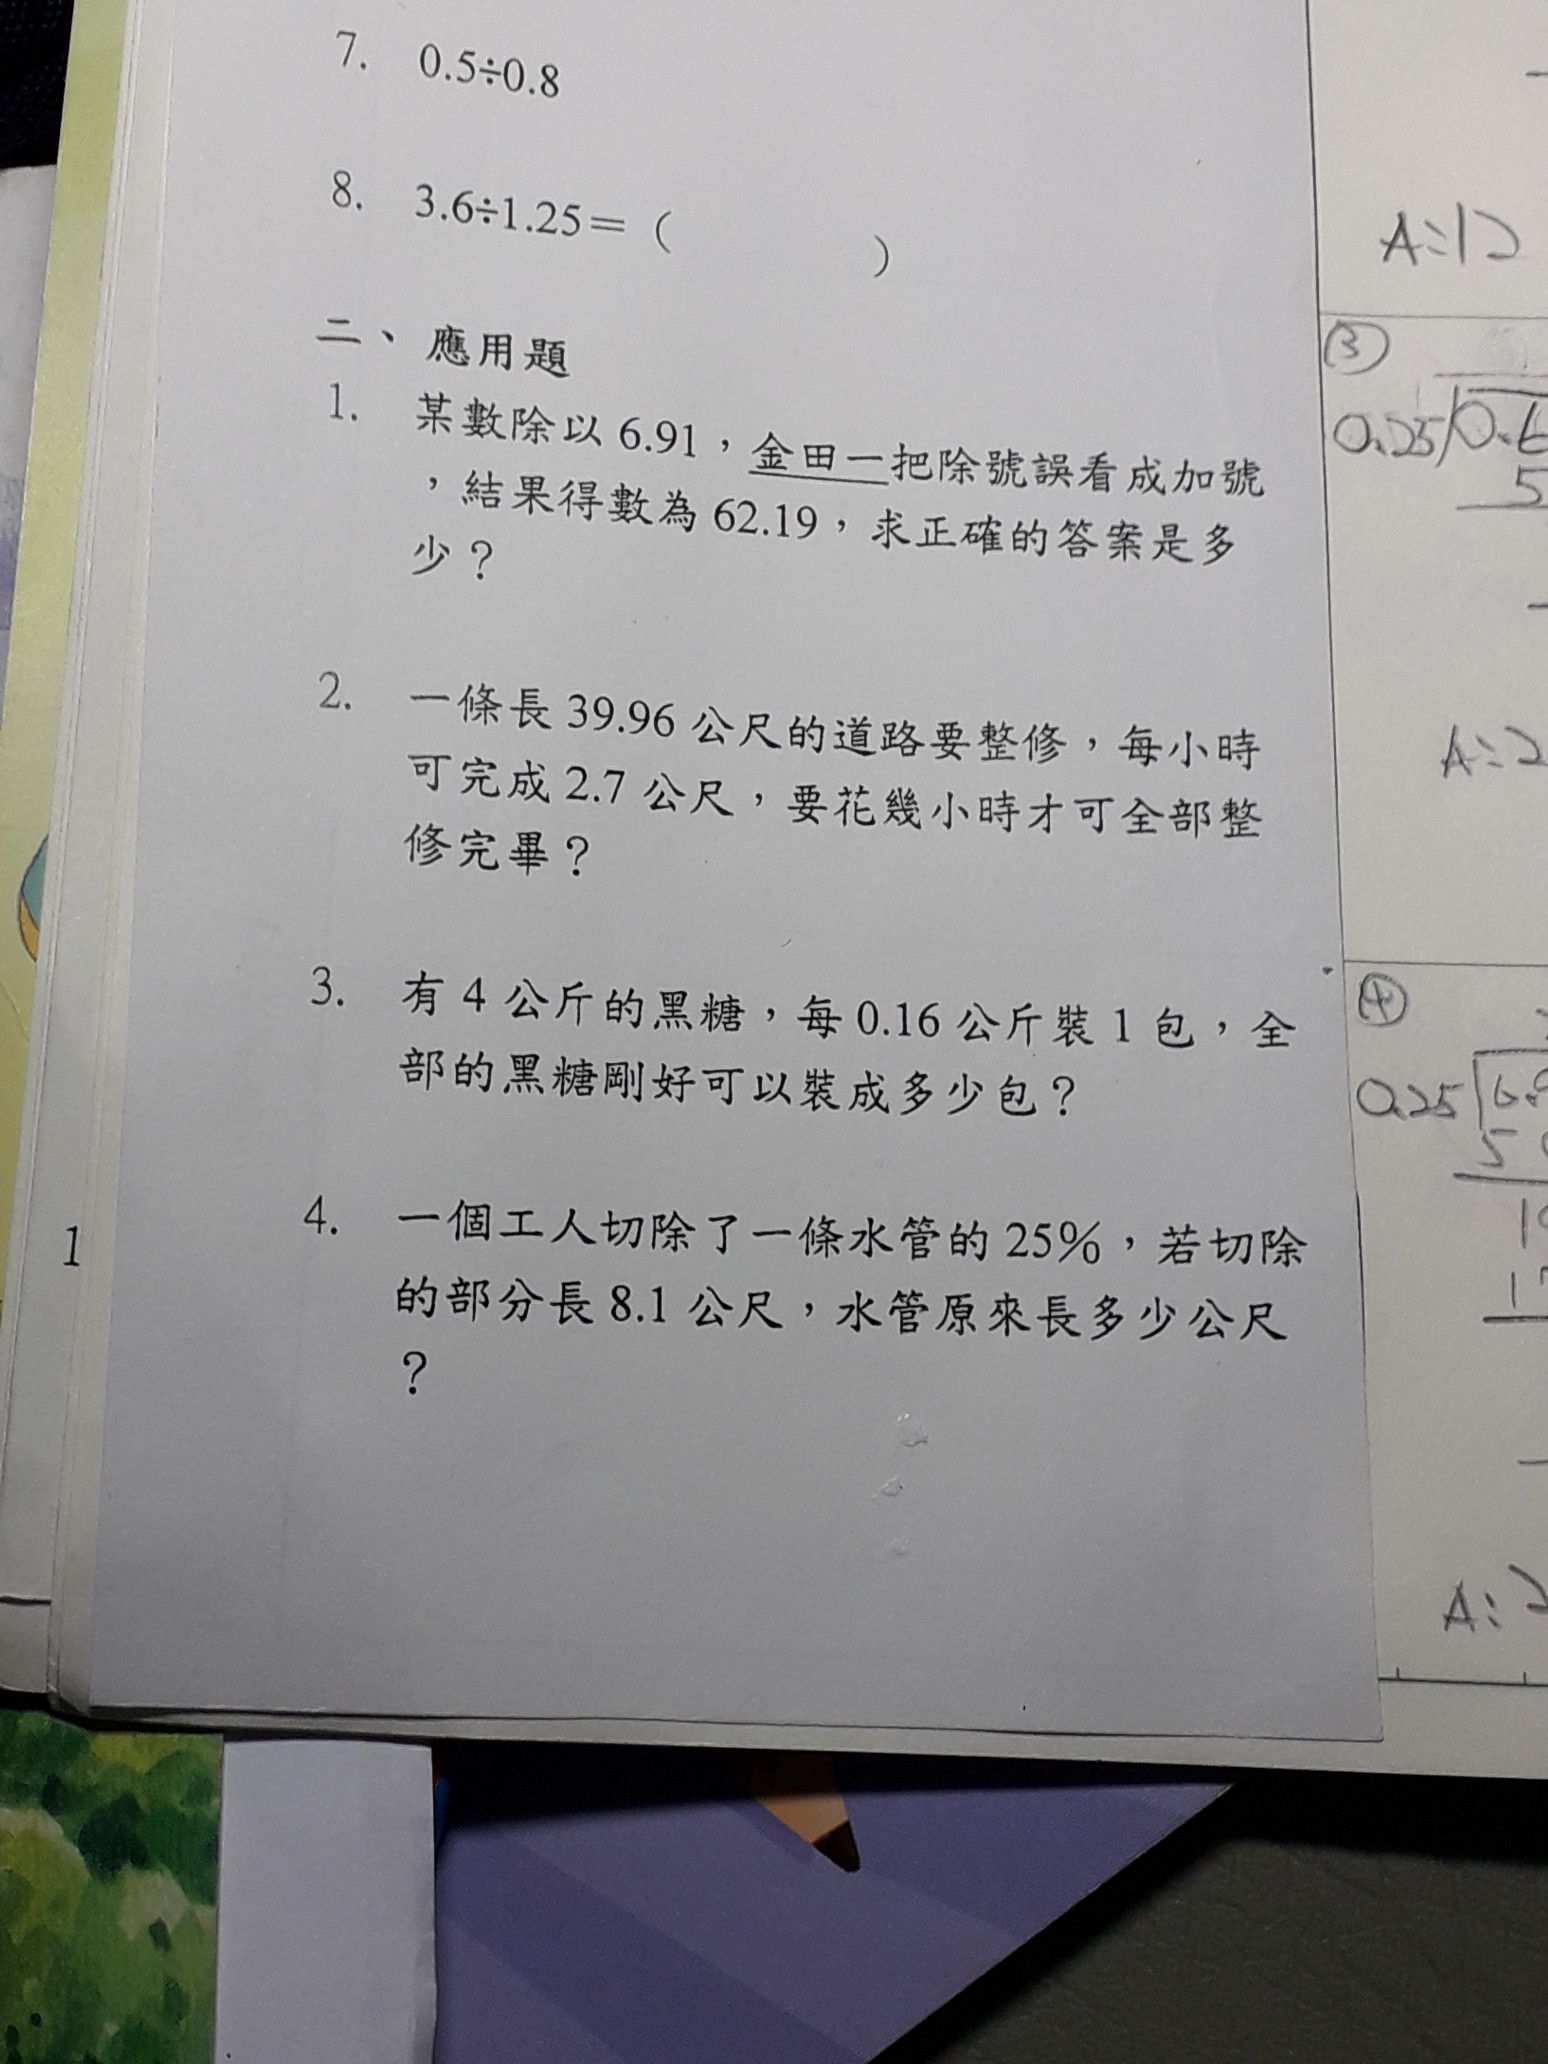 7. 0.5÷0.8
8. 3.6÷1.25＝（ ）
二、應用題
1. 某數除以 6.91，金田一把除號誤看成加號
，結果得數為 62.19，求正確的答案是多
少？
2. 一條長 39.96 公尺的道路要整修，每小時
可完成 2.7 公尺，要花幾小時才可全部整
修完畢？
3. 有 4 公斤的黑糖，每 0.16 公斤裝 1 包，全
部的黑糖剛好可以裝成多少包？
4. 一個工人切除了一條水管的 25%，若切除
的部分長 8.1 公尺，水管原來長多少公尺
？
1
A:12
③
0.25
5
A:2
④
0.25
A:2